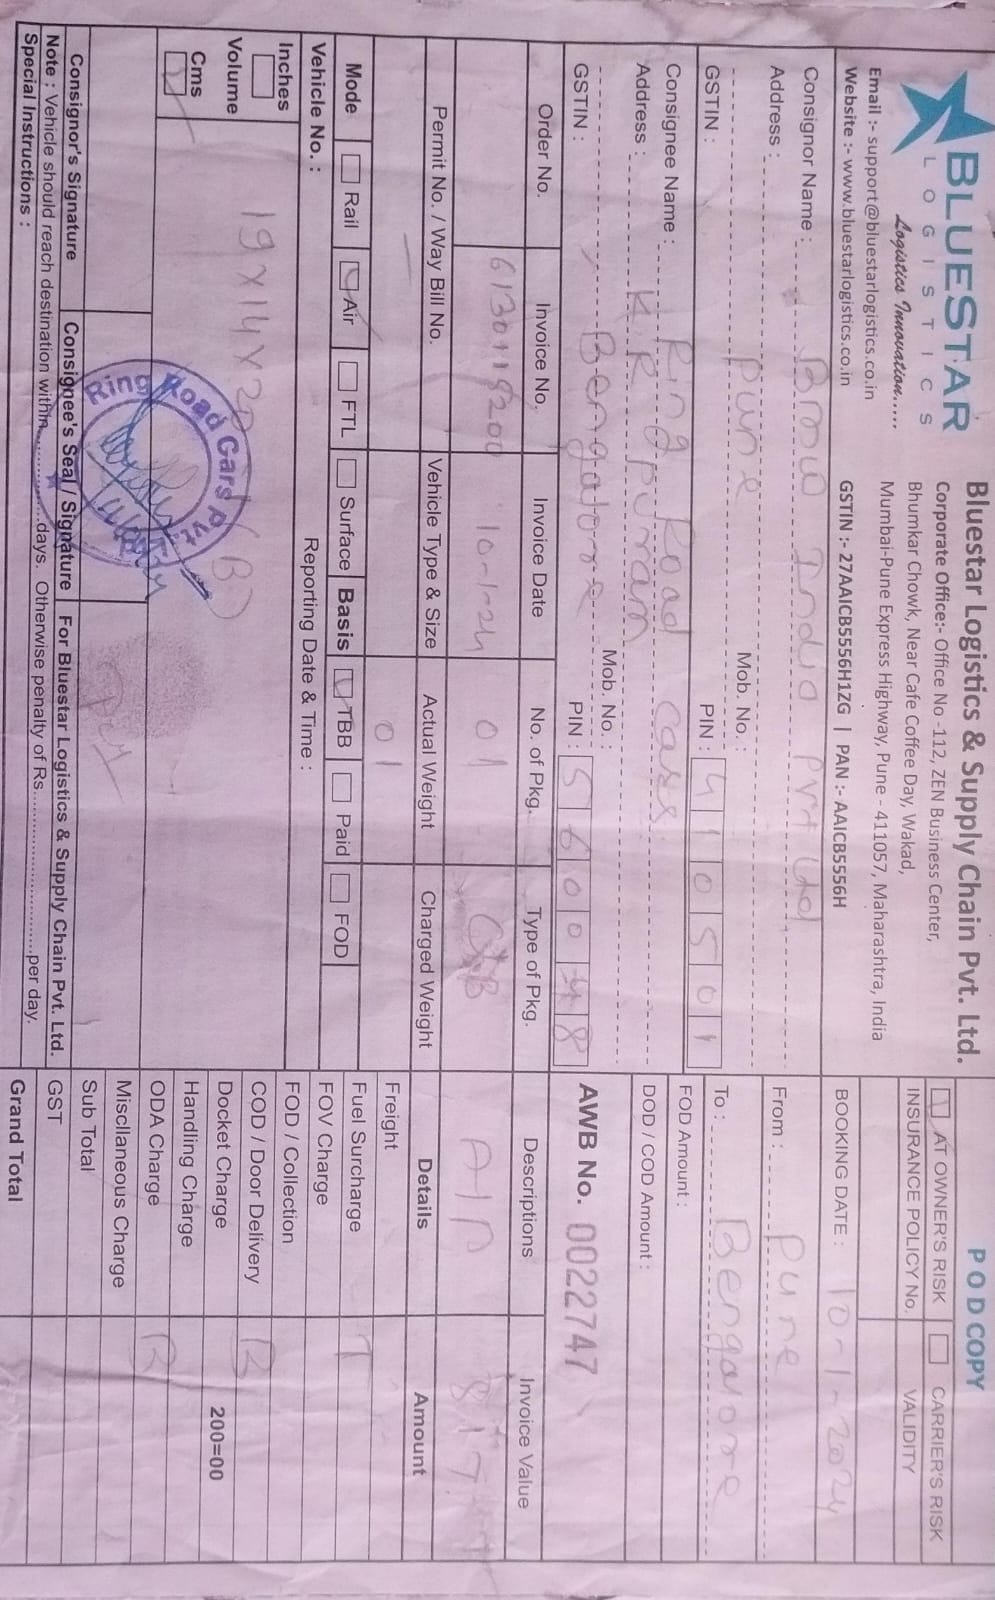 BLUESTAR
LOGISTICS
Logistics Innovation.....
Email :- support@bluestarlogistics.co.in
Website :- www.bluestarlogistics.co.in
Bluestar Logistics & Supply Chain Pvt. Ltd.
Corporate Office:- Office No -112, ZEN Business Center,
Bhumkar Chowk, Near Cafe Coffee Day, Wakad,
Mumbai-Pune Express Highway, Pune - 411057, Maharashtra, India
GSTIN :- 27AAICB5556H1ZG | PAN :- AAICB5556H
POD COPY
AT OWNER'S RISK CARRIER'S RISK
INSURANCE POLICY No. VALIDITY
BOOKING DATE : 10-1-2024
From : Pune
To : Bengalore
FOD Amount :
DOD / COD Amount :
AWB No. 0022747
Consignor Name : BMW India Pvt Ltd
Address :
Pune Mob. No. :
GSTIN : PIN : 410501
Consignee Name : Ring Road Cars
Address : K R Puram
Bengalore Mob. No. :
GSTIN : PIN : 560048
Order No. Invoice No. Invoice Date No. of Pkg. Type of Pkg. Descriptions Invoice Value
10-1-24 01 AIP
Permit No. / Way Bill No. Vehicle Type & Size Actual Weight Charged Weight
01
Mode Rail Air FTL Surface Basis TBB Paid FOD
Vehicle No. : Reporting Date & Time :
Inches
Volume
Cms
19X14X20 (B)
Ring Road Cars Pvt. Ltd
Details Amount
Freight
Fuel Surcharge T
FOV Charge
FOD / Collection
COD / Door Delivery B
Docket Charge 200=00
Handling Charge
ODA Charge B
Miscllaneous Charge
Sub Total
GST
Grand Total
Consignor's Signature Consignee's Seal / Signature For Bluestar Logistics & Supply Chain Pvt. Ltd.
Note : Vehicle should reach destination within................days. Otherwise penalty of Rs.................................per day.
Special Instructions :